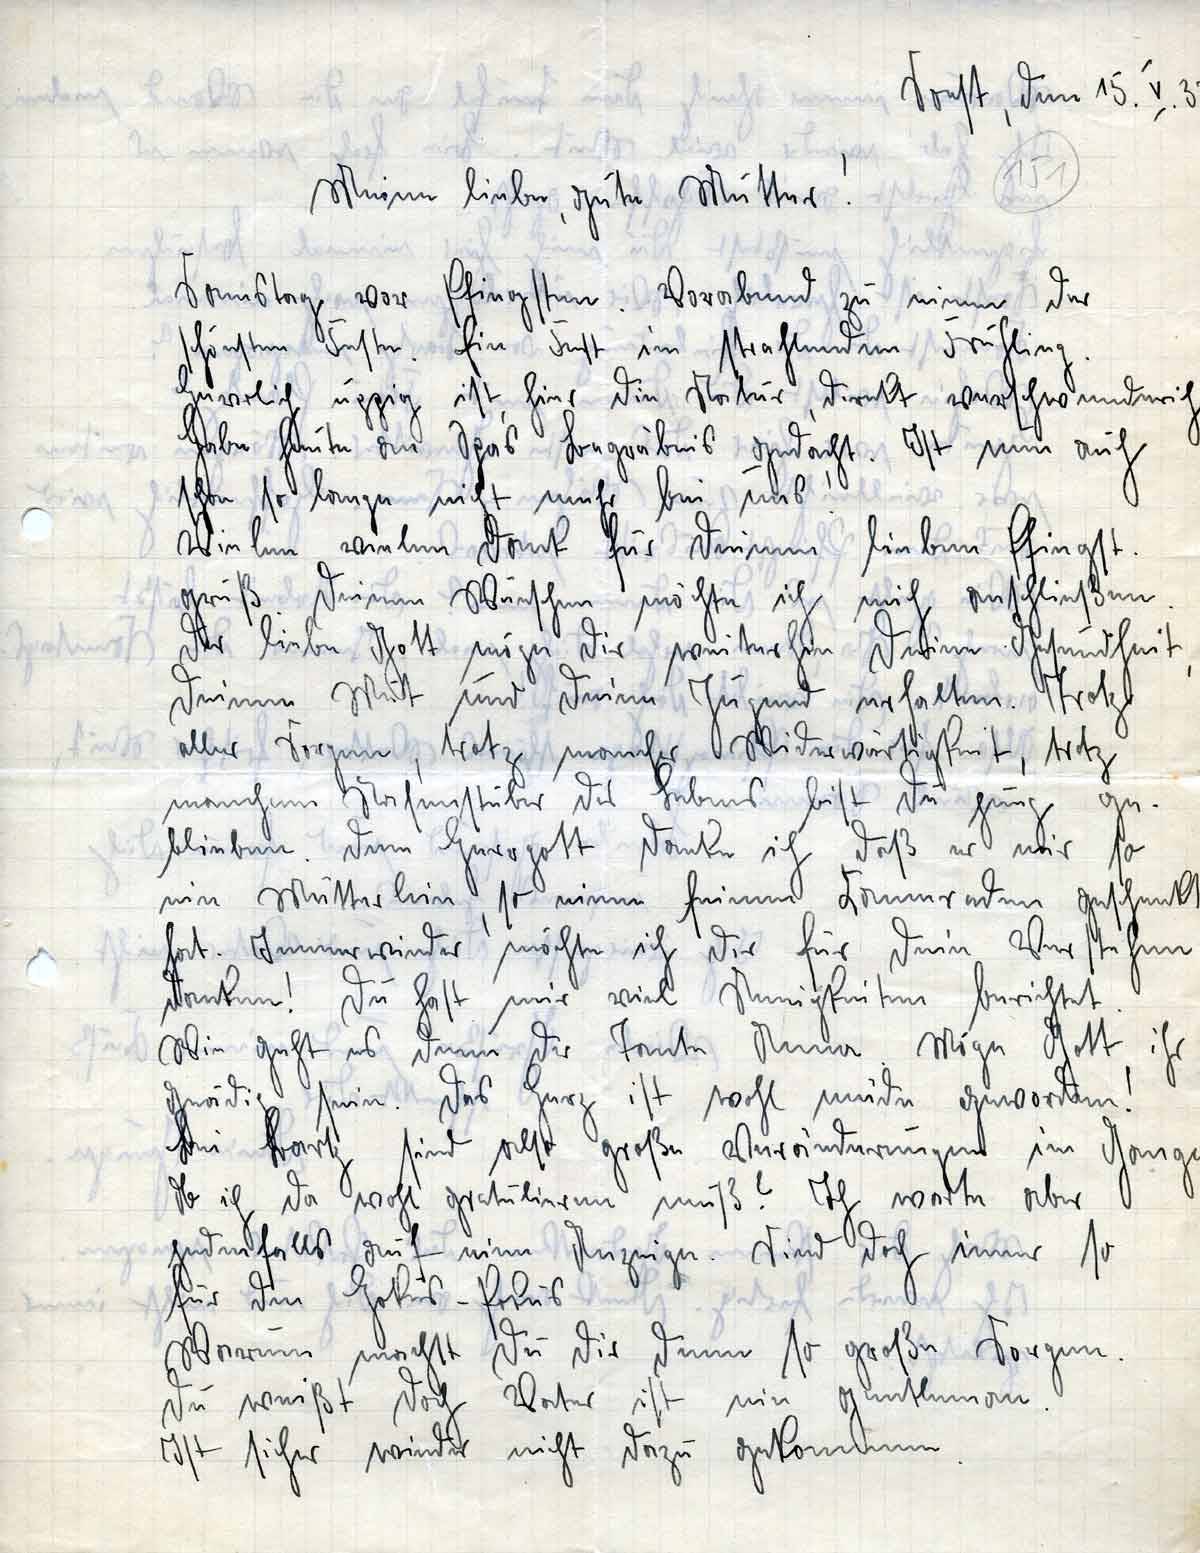 Soest, den 15. V. 3
151
Meine liebe, gute Mutter!
Samstag vor Pfingsten. Vorabend zu einem der
schönsten Feste. Ein Fest im strahlenden Frühling.
Herrlich üppig ist hier die Natur, direkt verschwenderisch
Habe heute an Opas Begräbnis gedacht. Ist nun auch
schon so lange nicht mehr bei uns!
Vielen vielen Dank für Deinen lieben Pfingst-
gruß. Deinen Wünschen möchte ich mich anschließen.
Der liebe Gott möge Dir weiterhin Deine Gesundheit,
Deinen Mut und Deine Jugend erhalten. Trotz
aller Sorgen, trotz mancher Widerwärtigkeit, trotz
manchem Nasenstüber des Lebens bist Du jung ge-
blieben. Dem Herrgott danke ich, daß er mir so
ein Mütterlein, so einen feinen Kameraden geschenkt
hat. Immerwieder möchte ich Dir für Dein Verstehen
danken! Du hast mir viel Neuigkeiten berichtet.
Wie geht es denn der Tante Anna. Möge Gott ihr
gnädig sein. Das Herz ist wohl müde geworden!
Bei sind also große Veränderungen im Gange
Ob ich da wohl gratulieren muß? Ich warte aber
jedenfalls auf eine Anzeige. Sind doch immer so
für den Hokus-Pokus
Warum machst Du Dir denn so große Sorgen.
Du weißt doch Vater ist ein gentleman.
Ist sicher wieder nicht dazu gekommen.